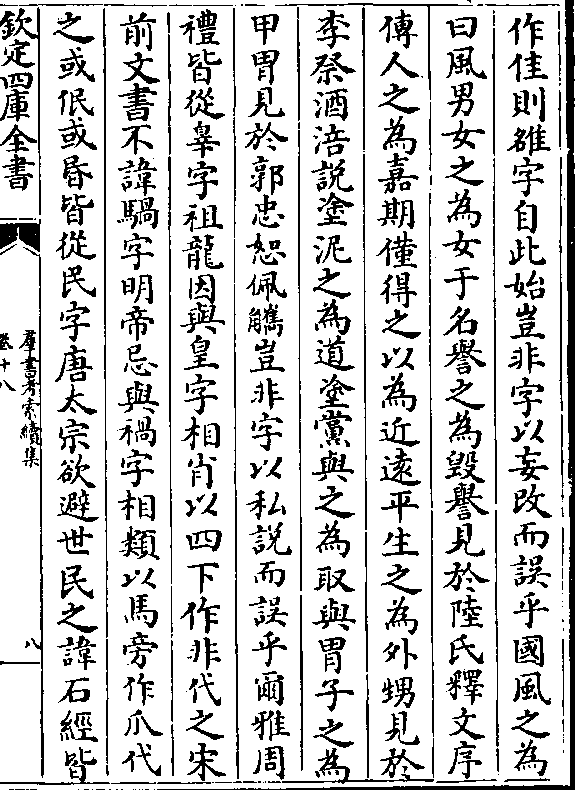 作佳則雒字自此始豈非字以妄改而誤乎國風之為
曰風男女之為女于名譽之為毀譽見於陸氏釋文序
傳人之為嘉期僅得之以為近逺平生之為外甥見於
李祭酒涪説塗泥之為道塗黨與之為取與胄子之為
甲胄見於郭忠恕佩觿豈非字以私説而誤乎爾雅周
禮皆從辠字祖龍因與皇字相肖以四下作非代之宋
前文書不諱騧字明帝忌與禍字相類以馬旁作爪代
之或㡬或昬皆從民字唐太宗欲避世民之諱石經皆
欽定四庫全書
羣書考索續集
卷十八
八